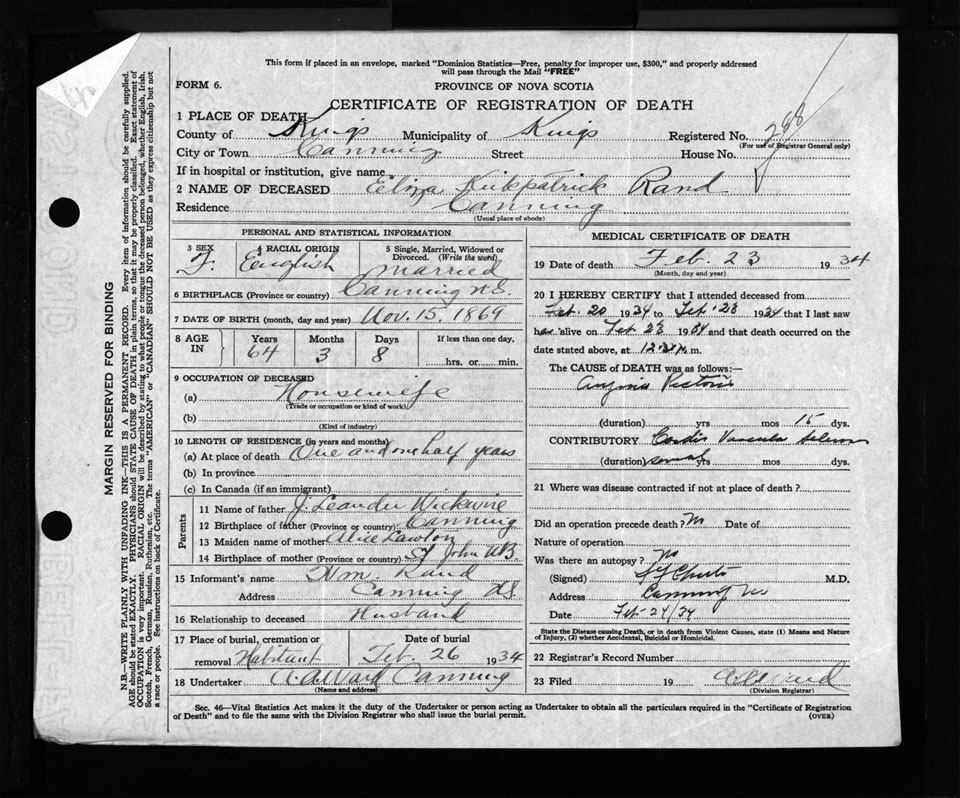 This form if placed in an envelope, marked "Dominion Statistics—Free, penalty for improper use, $300," and properly addressed
will pass through the Mail "FREE"
FORM 6.
PROVINCE OF NOVA SCOTIA
CERTIFICATE OF REGISTRATION OF DEATH
1 PLACE OF DEATH
County of Kings Municipality of Kings Registered No. 288
(For use of Registrar General only)
City or Town Canning Street House No.
If in hospital or institution, give name
2 NAME OF DECEASED Eliza Kirkpatrick Rand
Residence Canning
(Usual place of abode)
PERSONAL AND STATISTICAL INFORMATION
3 SEX 4 RACIAL ORIGIN 5 Single, Married, Widowed or
Divorced. (Write the word)
F. English married
6 BIRTHPLACE (Province or country) Canning N.S.
7 DATE OF BIRTH (month, day and year) Nov. 15, 1869
8 AGE IN Years Months Days If less than one day,
64 3 8 hrs. or min.
9 OCCUPATION OF DECEASED
(a) Housewife
(Trade or occupation or kind of work)
(b)
(Kind of industry)
10 LENGTH OF RESIDENCE (in years and months)
(a) At place of death One and one half years
(b) In province
(c) In Canada (if an immigrant)
Parents
11 Name of father J. Leander Wickwire
12 Birthplace of father (Province or country) Canning
13 Maiden name of mother Alice Lawton
14 Birthplace of mother (Province or country) St John N.B.
15 Informant's name Wm. Rand
Address Canning N.S.
16 Relationship to deceased Husband
17 Place of burial, cremation or Date of burial
removal Habitant Feb. 26 1934
18 Undertaker A.A. Ward Canning
(Name and address)
MEDICAL CERTIFICATE OF DEATH
19 Date of death Feb. 23 1934
(Month, day and year)
20 I HEREBY CERTIFY that I attended deceased from
Feb. 20 1934 to Feb. 23 1934 that I last saw
her alive on Feb 23 1934 and that death occurred on the
date stated above, at m.
The CAUSE of DEATH was as follows:—
Angina Pectoris
(duration) yrs mos 15 dys.
CONTRIBUTORY Cardio Vascular
(duration) yrs mos dys.
21 Where was disease contracted if not at place of death?
Did an operation precede death? No Date of
Nature of operation
Was there an autopsy? No
(Signed) M.D.
Address Canning NS
Date Feb-24/34
State the Disease causing Death, or in death from Violent Causes, state (1) Means and Nature
of Injury, (2) whether Accidental, Suicidal or Homicidal.
22 Registrar's Record Number
23 Filed 19
(Division Registrar)
Sec. 46—Vital Statistics Act makes it the duty of the Undertaker or person acting as Undertaker to obtain all the particulars required in the "Certificate of Registration
of Death" and to file the same with the Division Registrar who shall issue the burial permit. (OVER)
MARGIN RESERVED FOR BINDING
N.B.—WRITE PLAINLY WITH UNFADING INK—THIS IS A PERMANENT RECORD. Every item of information should be carefully supplied.
AGE should be stated EXACTLY. PHYSICIANS should STATE CAUSE OF DEATH in plain terms, so that it may be properly classified. Exact statement of
OCCUPATION is very important. RACIAL ORIGIN will be described by stating to what people or tongue the deceased person belonged, whether English, Irish,
Scotch, French, German, Russian, Ruthenian, etc. The terms "AMERICAN" or "CANADIAN" SHOULD NOT BE USED as they express citizenship but not
a race or people. See instructions on back of Certificate.